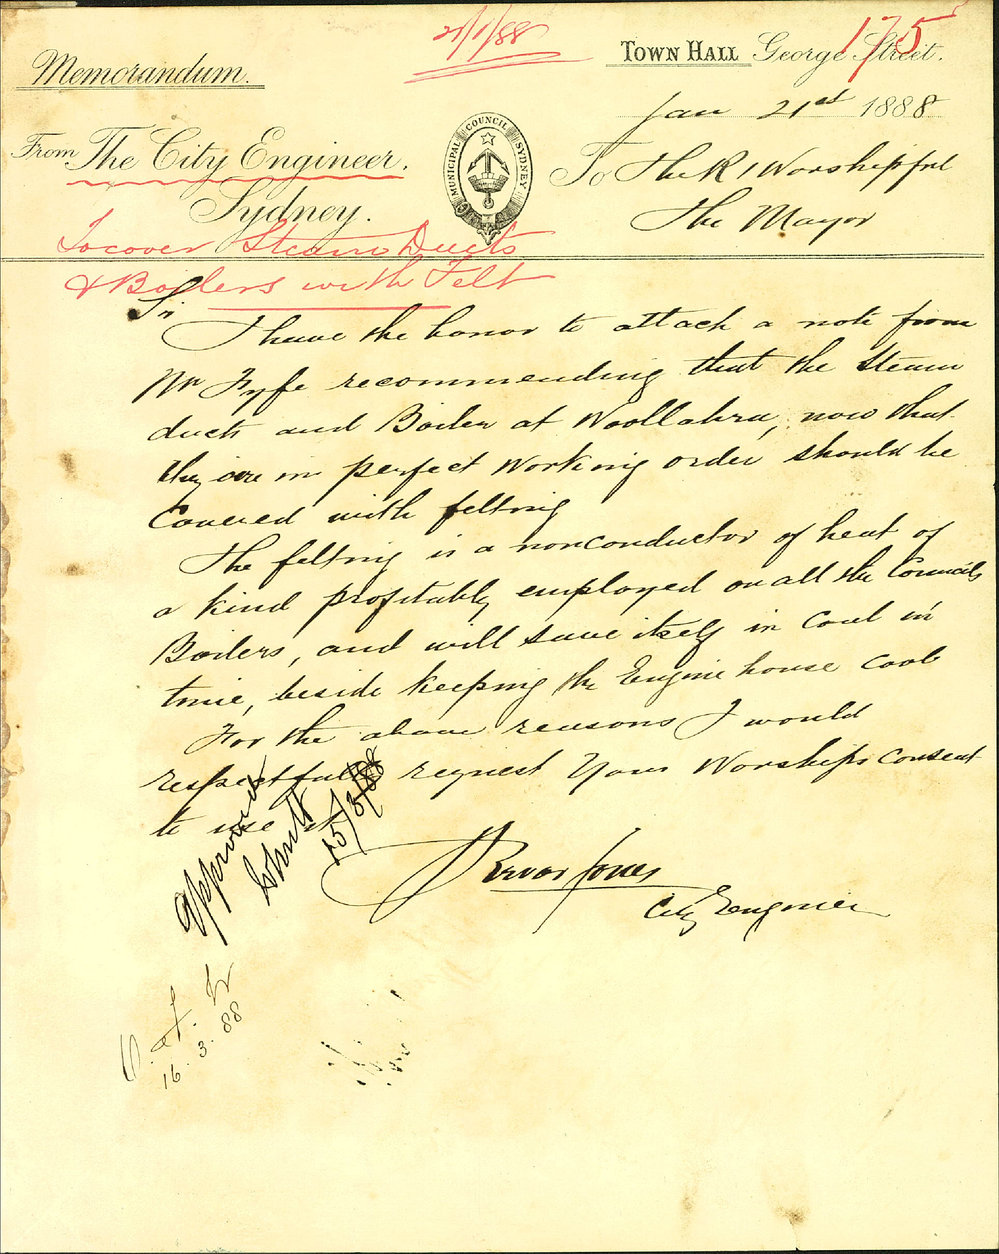 21/1/88
175
Memorandum.
TOWN HALL George Street.
Jan 21st 1888
From The City Engineer.
Sydney.
MUNICIPAL COUNCIL SYDNEY
To The Rt Worshipful
The Mayor
To cover Steam Ducts
& Boilers with Felt
Sir
I have the honor to attach a note from
Mr Fyfe recommending that the Steam
ducts and Boiler at Woollahra, now that
they are in perfect working order should be
Covered with felting
The felting is a nonconductor of heat of
a kind profitably employed on all the Councils
Boilers, and will save itself in Coal in
time, beside keeping the Engine house cool
For the above reasons I would
respectfully request Your Worships Consent
to use it
Approved
15/3/88
Trevor Jones
City Engineer
16.3.88